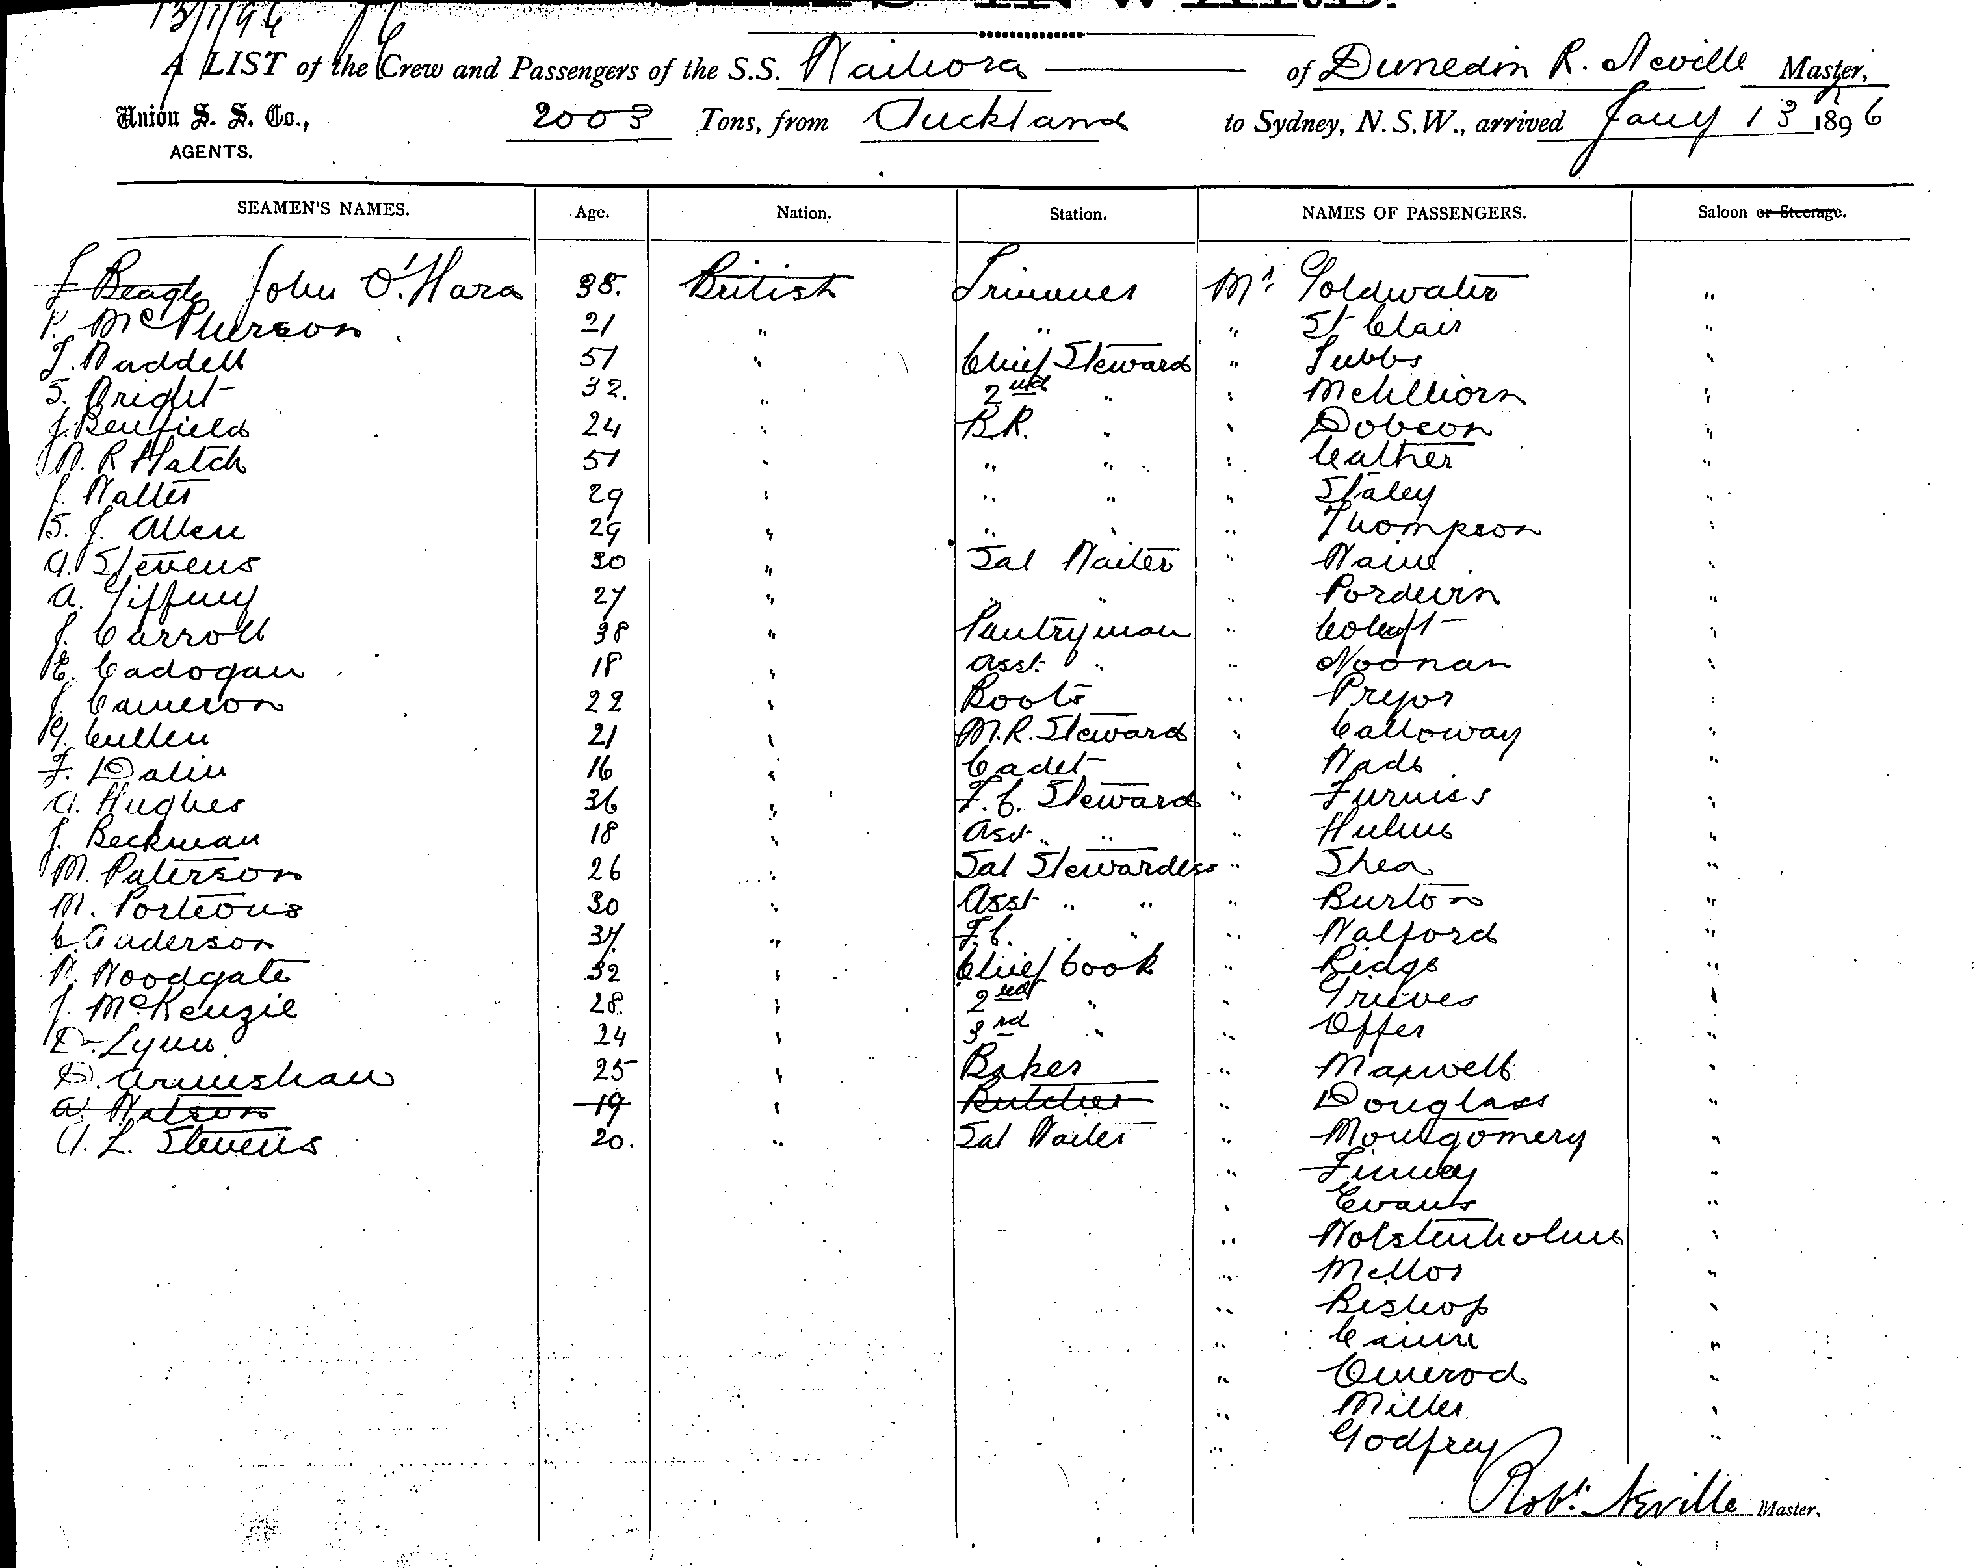 13/1/96
A LIST of the Crew and Passengers of the S.S. Waihora of Dunedin R. Neville Master,
Union S. S. Co., AGENTS. 2003 Tons, from Auckland to Sydney, N.S.W., arrived Jany 13 1896
SEAMEN'S NAMES. Age. Nation. Station. NAMES OF PASSENGERS. Saloon or Steerage.
J Beagle John O'Hara 38. British Trimmer Mr Goldwater "
P. McPherson 21 " " " St Clair "
J. Waddell 51 " Chief Steward " Tubbs "
S. Bright 32. " 2nd " " "
J. Benfield 24 " B.R. " " Dobson "
W. R Hatch 51 " " " " Cather "
J. Walter 29 " " " " Staley "
S. J. Allen 29 " " " " Thompson "
A. Stevens 30 " Sal Waiter " "
A. Giffney 27 " " " " Pordevin "
J. Carroll 38 " Pantryman " "
E. Cadogan 18 " Asst. " " Noonan "
J. Cameron 22 " Boots " Pryor "
G. Cullen 21 " M.R. Steward " Calloway "
F. Dalin 16 " Cadet " Wade "
A. Hughes 36 " F.C. Steward " Furniss "
J. Beckman 18 " Asst. " " Hulme "
M. Paterson 26 " Sal Stewardess " Shea "
M. Porteous 30 " Asst " " " Burton "
C. Anderson 37. " F.C. " " Walford "
W. Woodgate 32 " Chief Cook " Ridge "
J. McKenzie 28. " 2nd " " Grieves "
D. Lynn 24 " 3rd " " Offer "
D. Armishaw 25 " Baker " Maxwell "
A. Watson 19 " Butcher " Douglass "
A. L. Stevens 20. " Sal Waiter " Montgomery "
" Finney "
" Evans "
" Wolstenholme "
" Mellor "
" Bishop "
" "
" Omerod "
" Miller "
" Godfrey "
Robt. Neville Master.